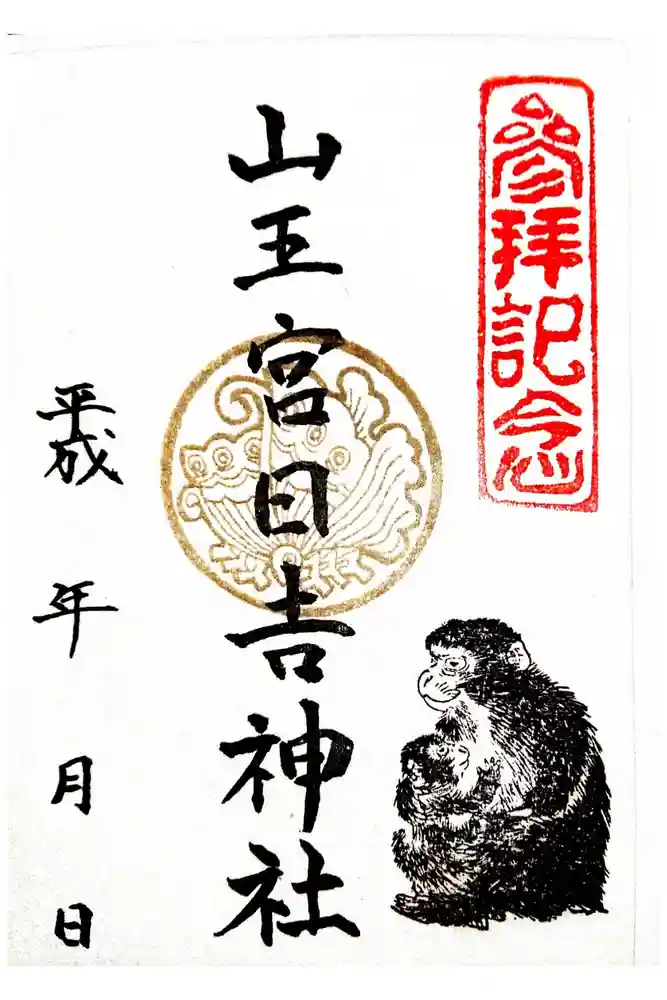 參拝記念
山王宮日吉神社
平成 年 月 日